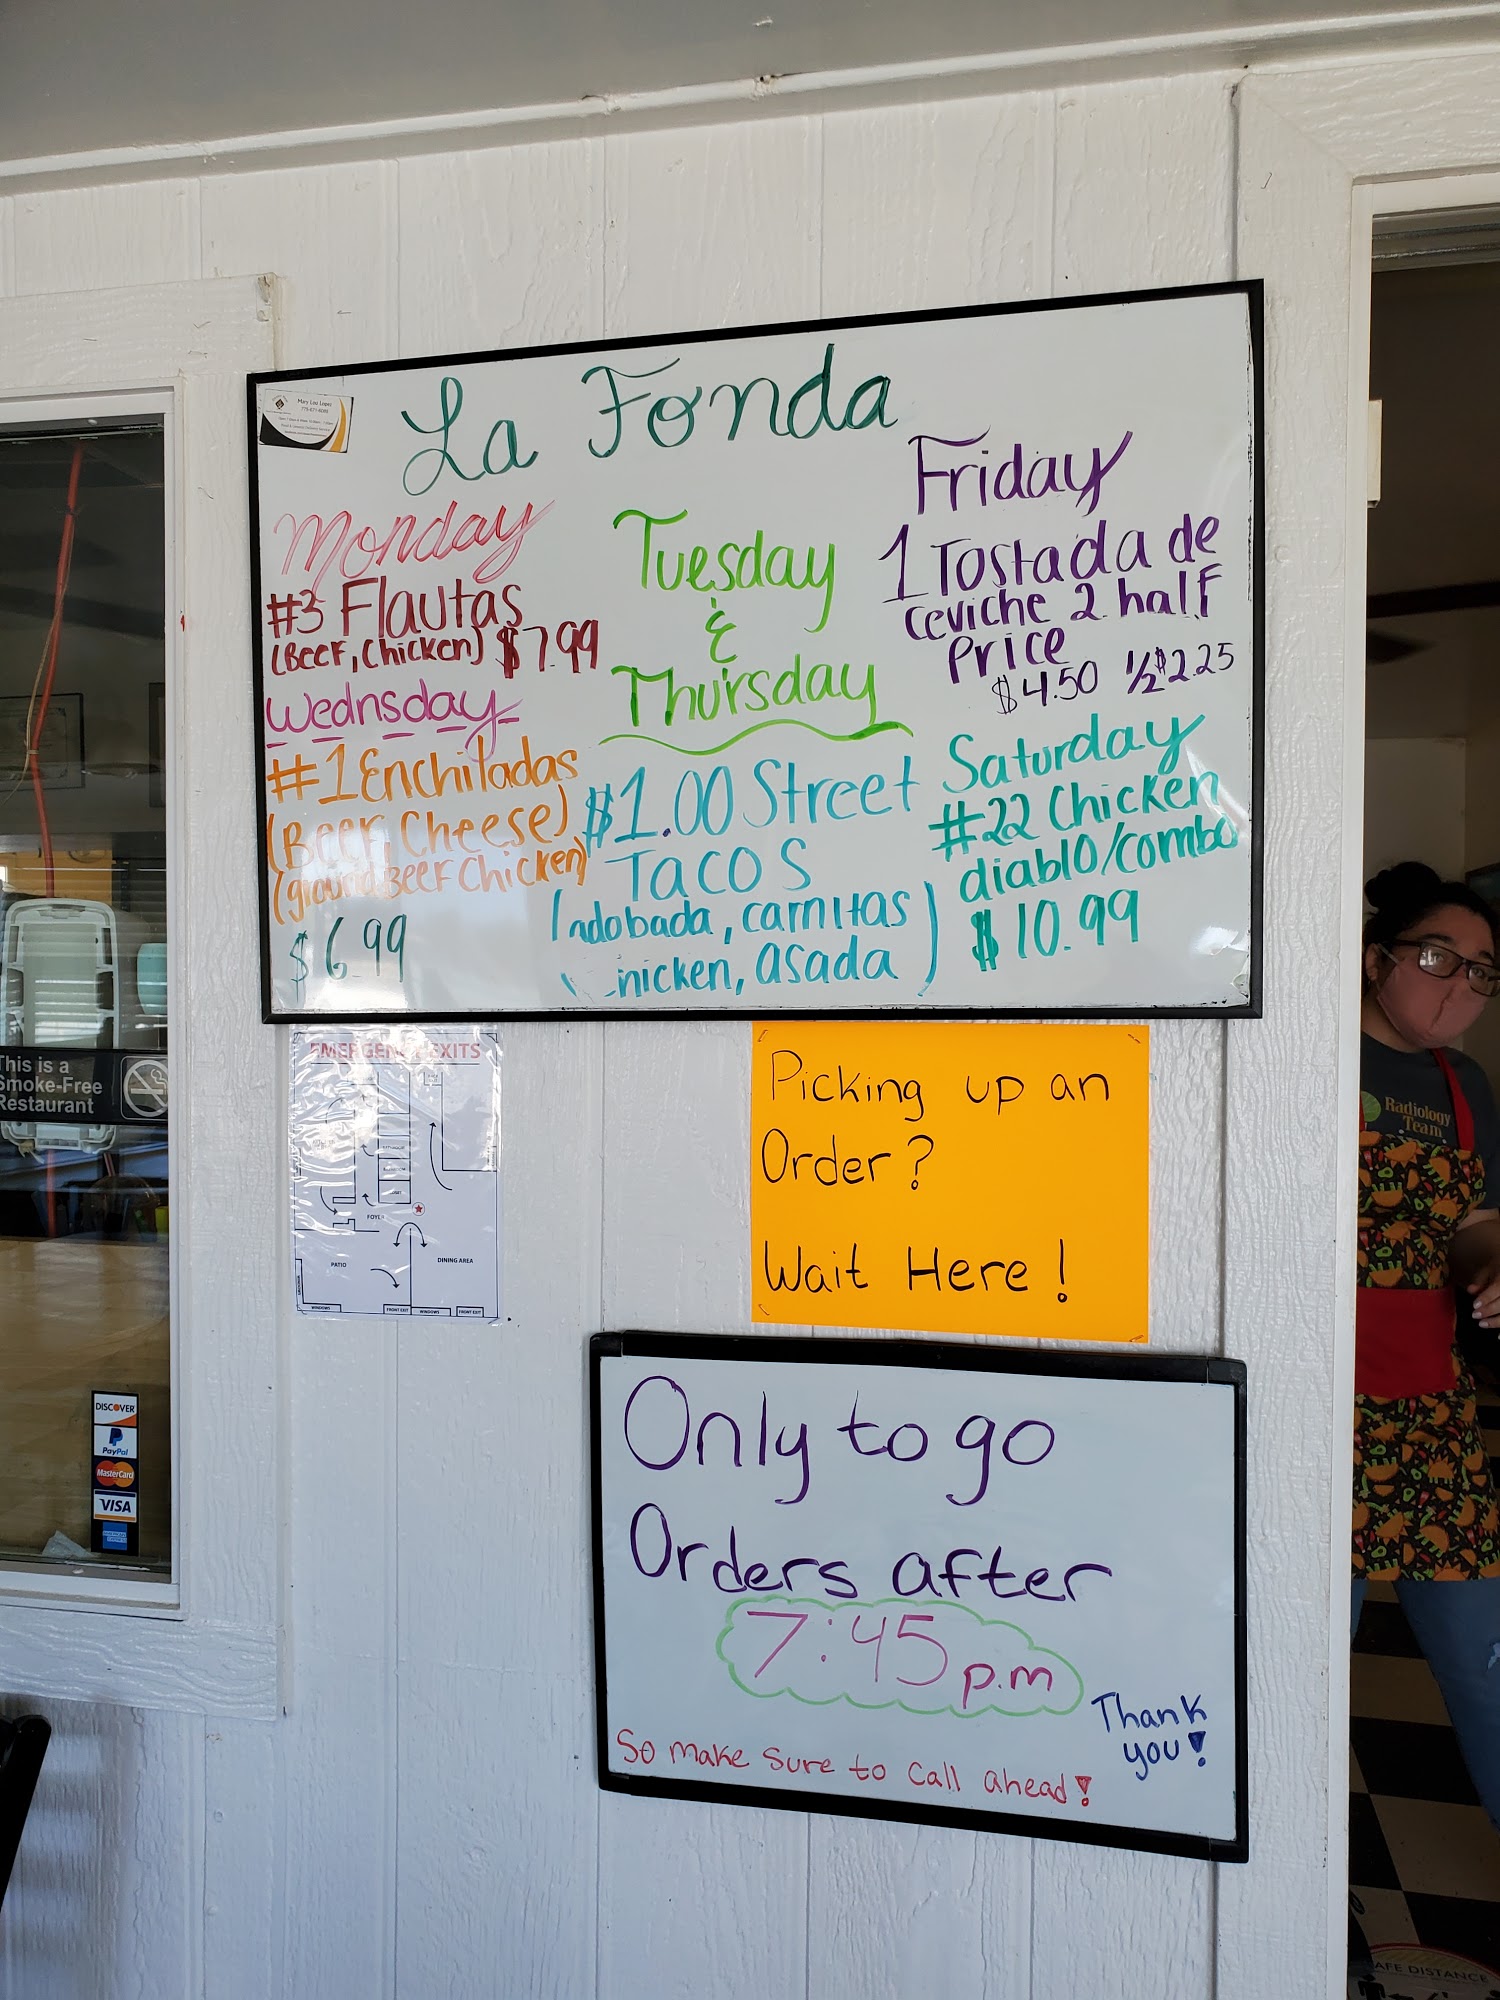 La Fonda
Mary Lou Lopez
Monday
#3 Flautas
(Beef, Chicken) $7.99
Wednsday
#1 Enchiladas
(Beef, Cheese)
(ground Beef Chicken)
$6.99
Tuesday
&
Thursday
$1.00 Street
Tacos
Adobada, carnitas
hicken, asada )
Friday
1 Tostada de
ceviche 2 half
Price
$4.50 ½ $2.25
Saturday
#22 Chicken
diablo/combo
$10.99
EMERGENCY EXITS
FOYER
PATIO
DINING AREA
WINDOWS
FRONT EXIT
WINDOWS
FRONT EXIT
Picking up an
Order?
Wait Here!
Only to go
Orders after
7:45 p.m
Thank
you!
So make sure to call ahead!
This is a
Smoke-Free
Restaurant
DISCOVER
PayPal
MasterCard
VISA
Radiology
Team
AFE DISTANCE